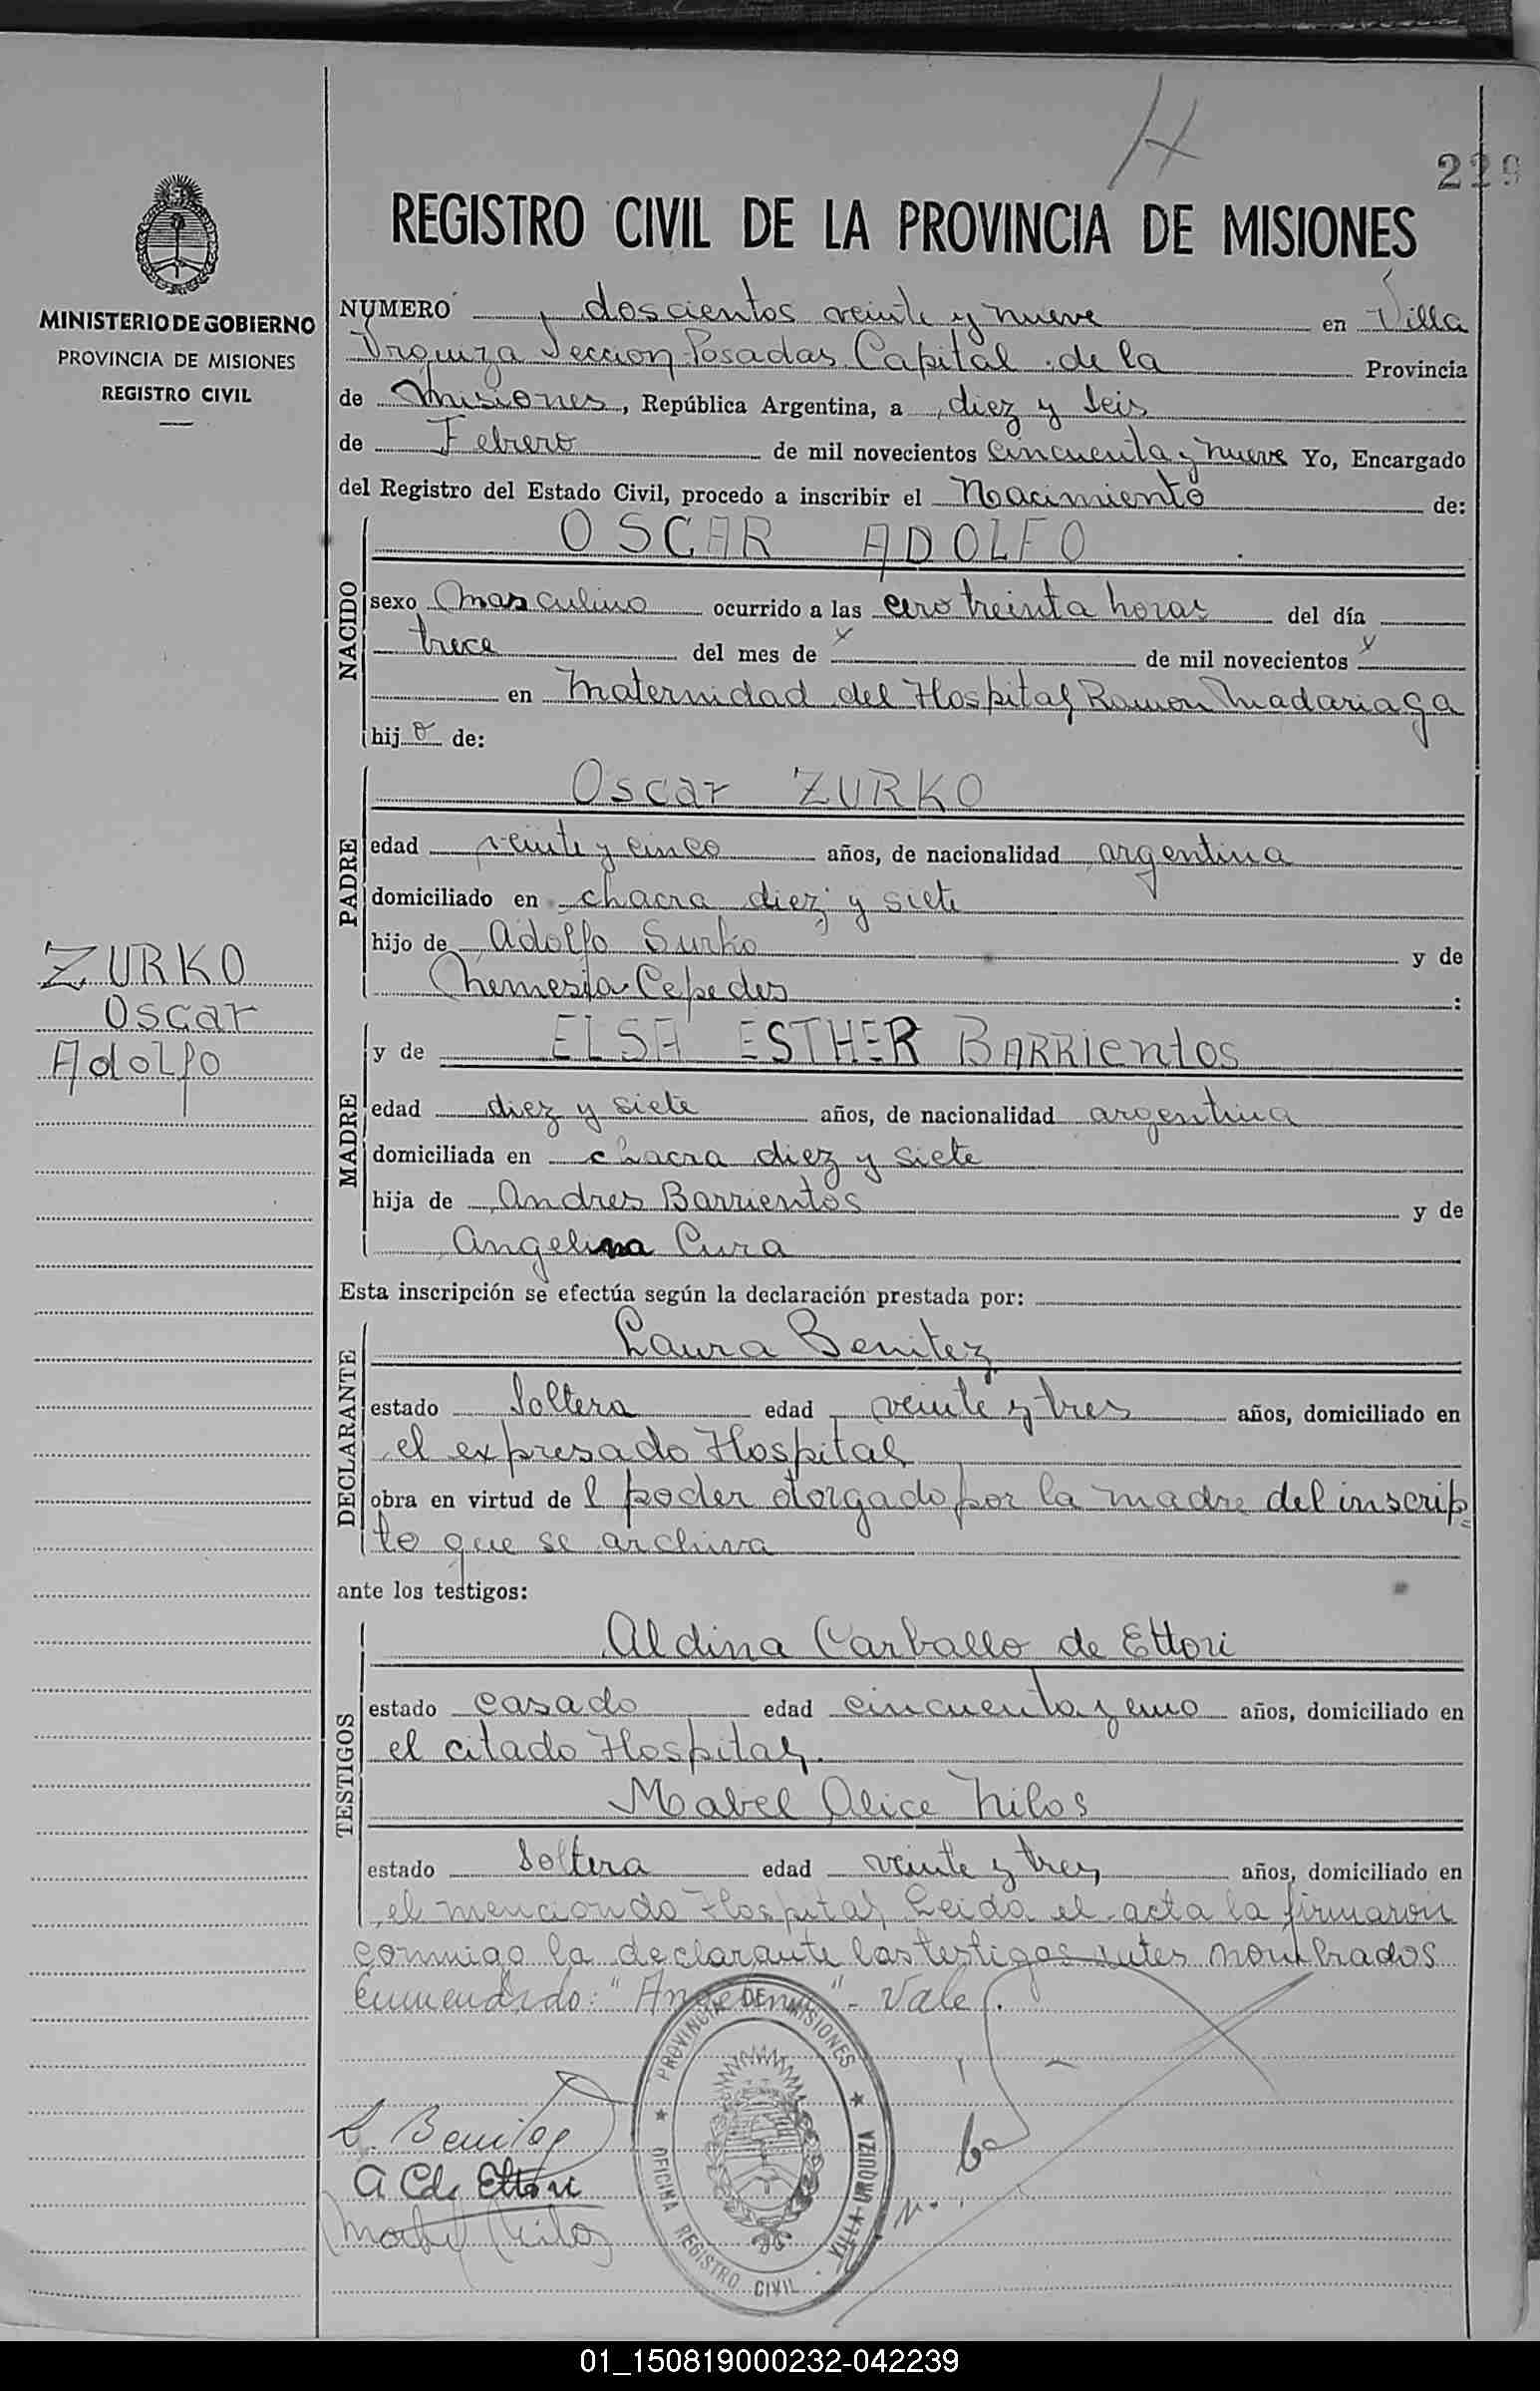 H
229
REGISTRO CIVIL DE LA PROVINCIA DE MISIONES
MINISTERIO DE GOBIERNO
PROVINCIA DE MISIONES
REGISTRO CIVIL
NUMERO doscientos veinte y nueve en Villa
Urquiza Seccion Posadas Capital de la Provincia
de Misiones, República Argentina, a diez y seis
de Febrero de mil novecientos cincuenta y nueve Yo, Encargado
del Registro del Estado Civil, procedo a inscribir el Nacimiento de:
NACIDO
OSCAR ADOLFO
sexo masculino ocurrido a las cero treinta horas del día
trece del mes de x de mil novecientos x
en Maternidad del Hospital Ramon Madariaga
hijo de:
PADRE
Oscar ZURKO
edad veinte y cinco años, de nacionalidad argentina
domiciliado en chacra diez y siete
hijo de Adolfo Surko y de
Nemesia Cepedes :
ZURKO
Oscar
Adolfo
MADRE
y de ELSA ESTHER BARRIentos
edad diez y siete años, de nacionalidad argentina
domiciliada en chacra diez y siete
hija de Andres Barrientos y de
Angelina Cura
Esta inscripción se efectúa según la declaración prestada por:
DECLARANTE
Laura Benitez
estado Soltera edad veinte y tres años, domiciliado en
el expresado Hospital
obra en virtud de l poder otorgado por la madre del inscrip=
to que se archiva
ante los testigos:
TESTIGOS
Aldina Carballo de Ettori
estado casado edad cincuenta y uno años, domiciliado en
el citado Hospital.
Mabel Alice Nilos
estado Soltera edad veinte y tres años, domiciliado en
el menciondo Hospital Leida el acta la firmaron
conmigo la declarante las testigos antes nombrados
Enmendado: "Angelina" - Vale.
PROVINCIA DE MISIONES
OFICINA REGISTRO CIVIL · VILLA URQUIZA
L. Benitez
A C de Ettori
Mabel Nilos
01_150819000232-042239